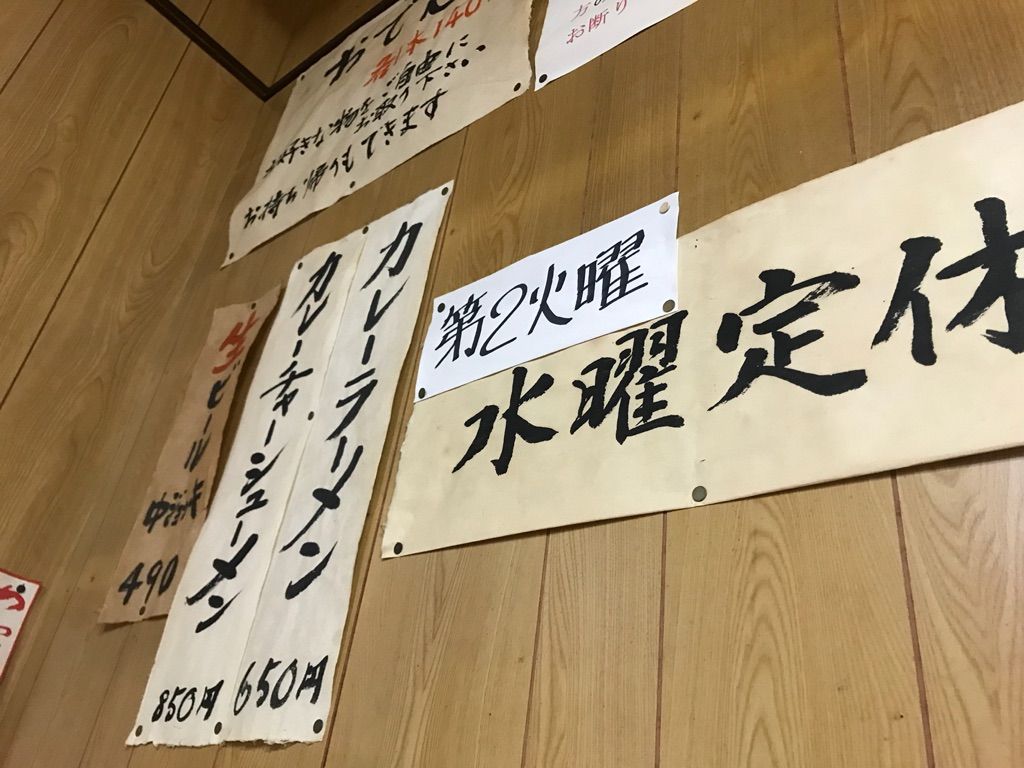 おでん
1本140
お好きな物を ご自由に
お取り下さい
お持ち帰りもできます
方の
お断り
第2火曜
水曜定休
カレーラーメン 650円
カレーチャーシューメン 850円
生ビール 中ジョッキ 490